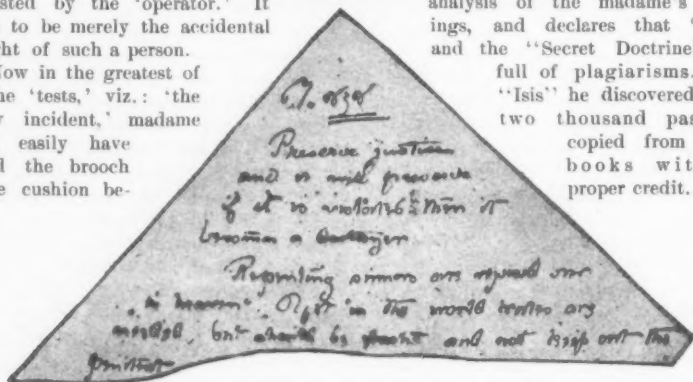 sted by the 'operator.' It
to be merely the accidental
ght of such a person.
Now in the greatest of
he 'tests,' viz.: 'the
y incident,' madame
easily have
d the brooch
e cushion be-
analysis of the madame's
ings, and declares that
and the "Secret Doctrine
full of plagiarisms.
"Isis" he discovered
two thousand pas
copied from
books wit
proper credit.
Preserve justice
and it will preserve
if it is violated then it
becomes a destroyer
Repenting sinners are over
in heaven in the world are
but should be and not keep out the
penitent